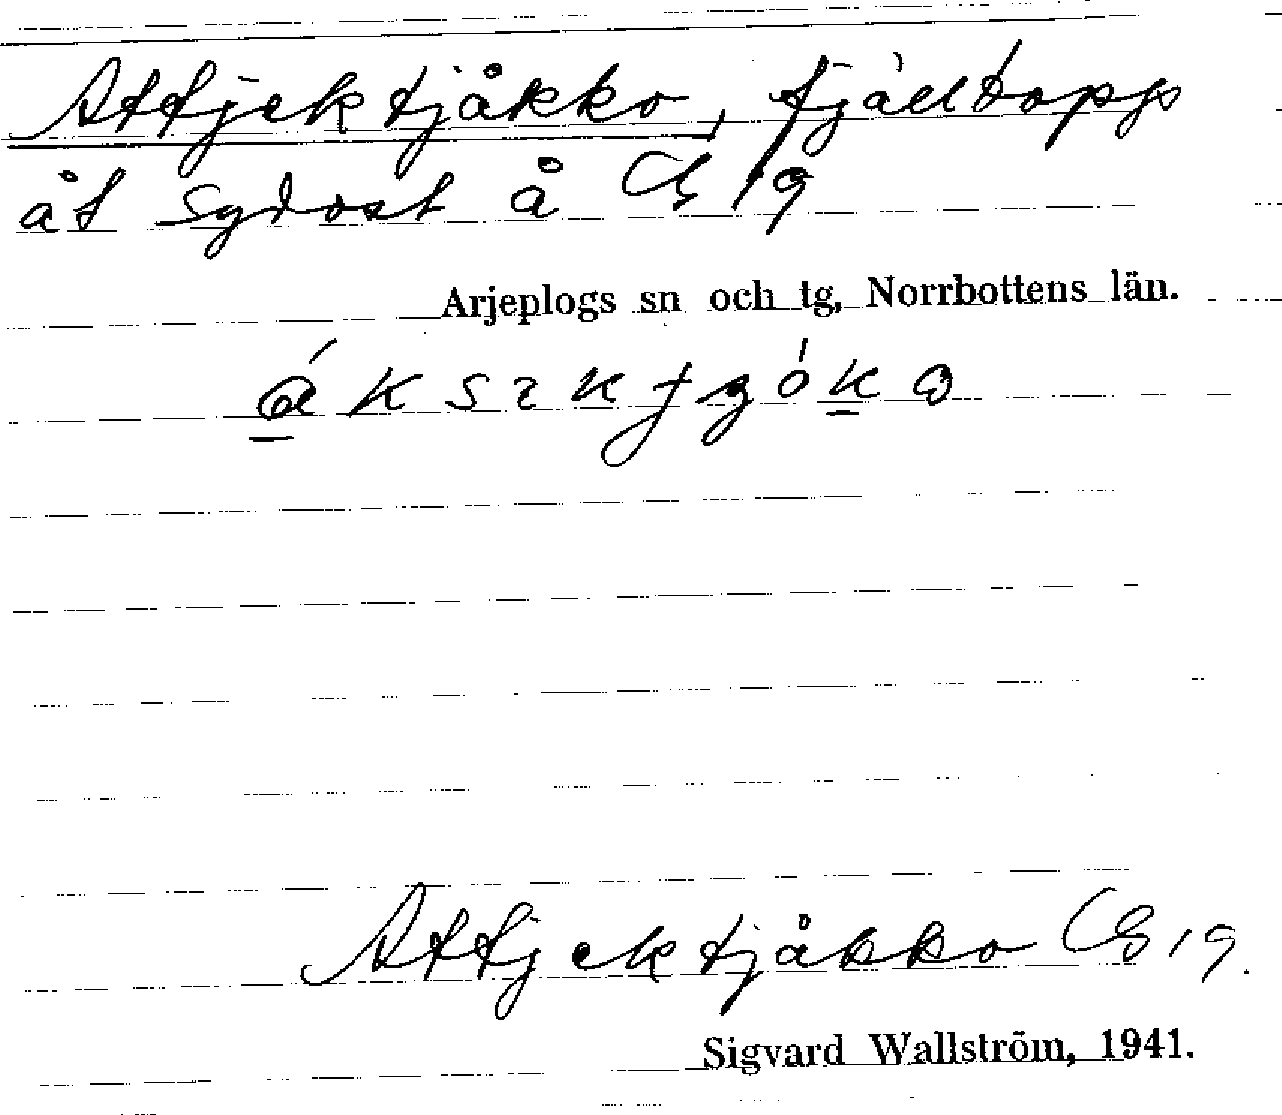 Attjektjåkko, fjälltopp
åt sydost å Gb 19
Arjeplogs sn och tg, Norrbottens län.
Attjektjåkko Gb 19.
Sigvard Wallström, 1941.